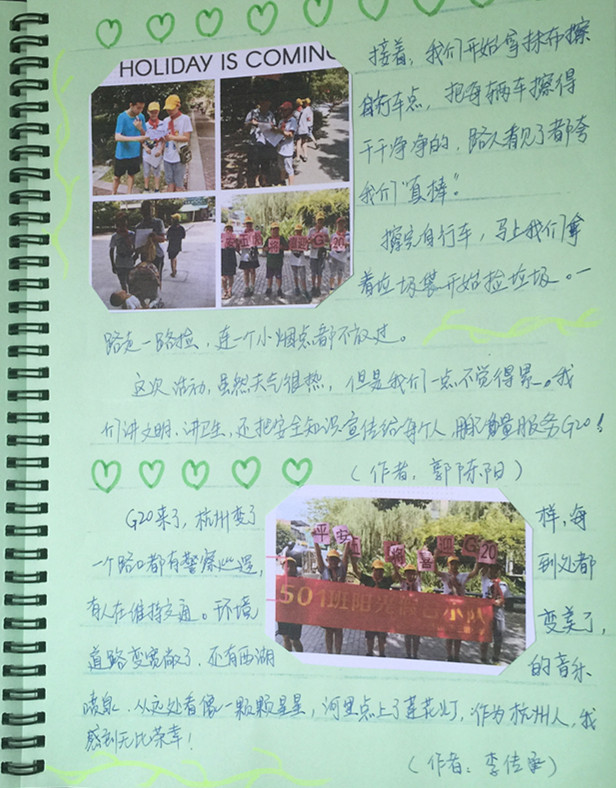 HOLIDAY IS COMING
接着，我们开始拿抹布擦
自行车点，把每辆车擦得
干干净净的，路人看见了都夸
我们“真棒”。
擦完自行车，马上我们拿
着垃圾袋开始捡垃圾。一
路走一路捡，连一个小烟点都不放过。
这次活动，虽然天气很热，但是我们一点不觉得累。我
们讲文明、讲卫生，还把安全知识宣传给每个人，用服务G20！
（作者：郭陈阳）
G20来了，杭州变了样，每
一个路口都有警察巡逻，到处都
有人在维持交通。环境变美了，
道路变宽敞了，还有西湖的音乐
喷泉，从远处看像一颗颗星星，河里点上了莲花灯，作为杭州人，我
感到无比荣幸！
平安 喜迎G20
501班阳光假日小队
（作者：李佳）